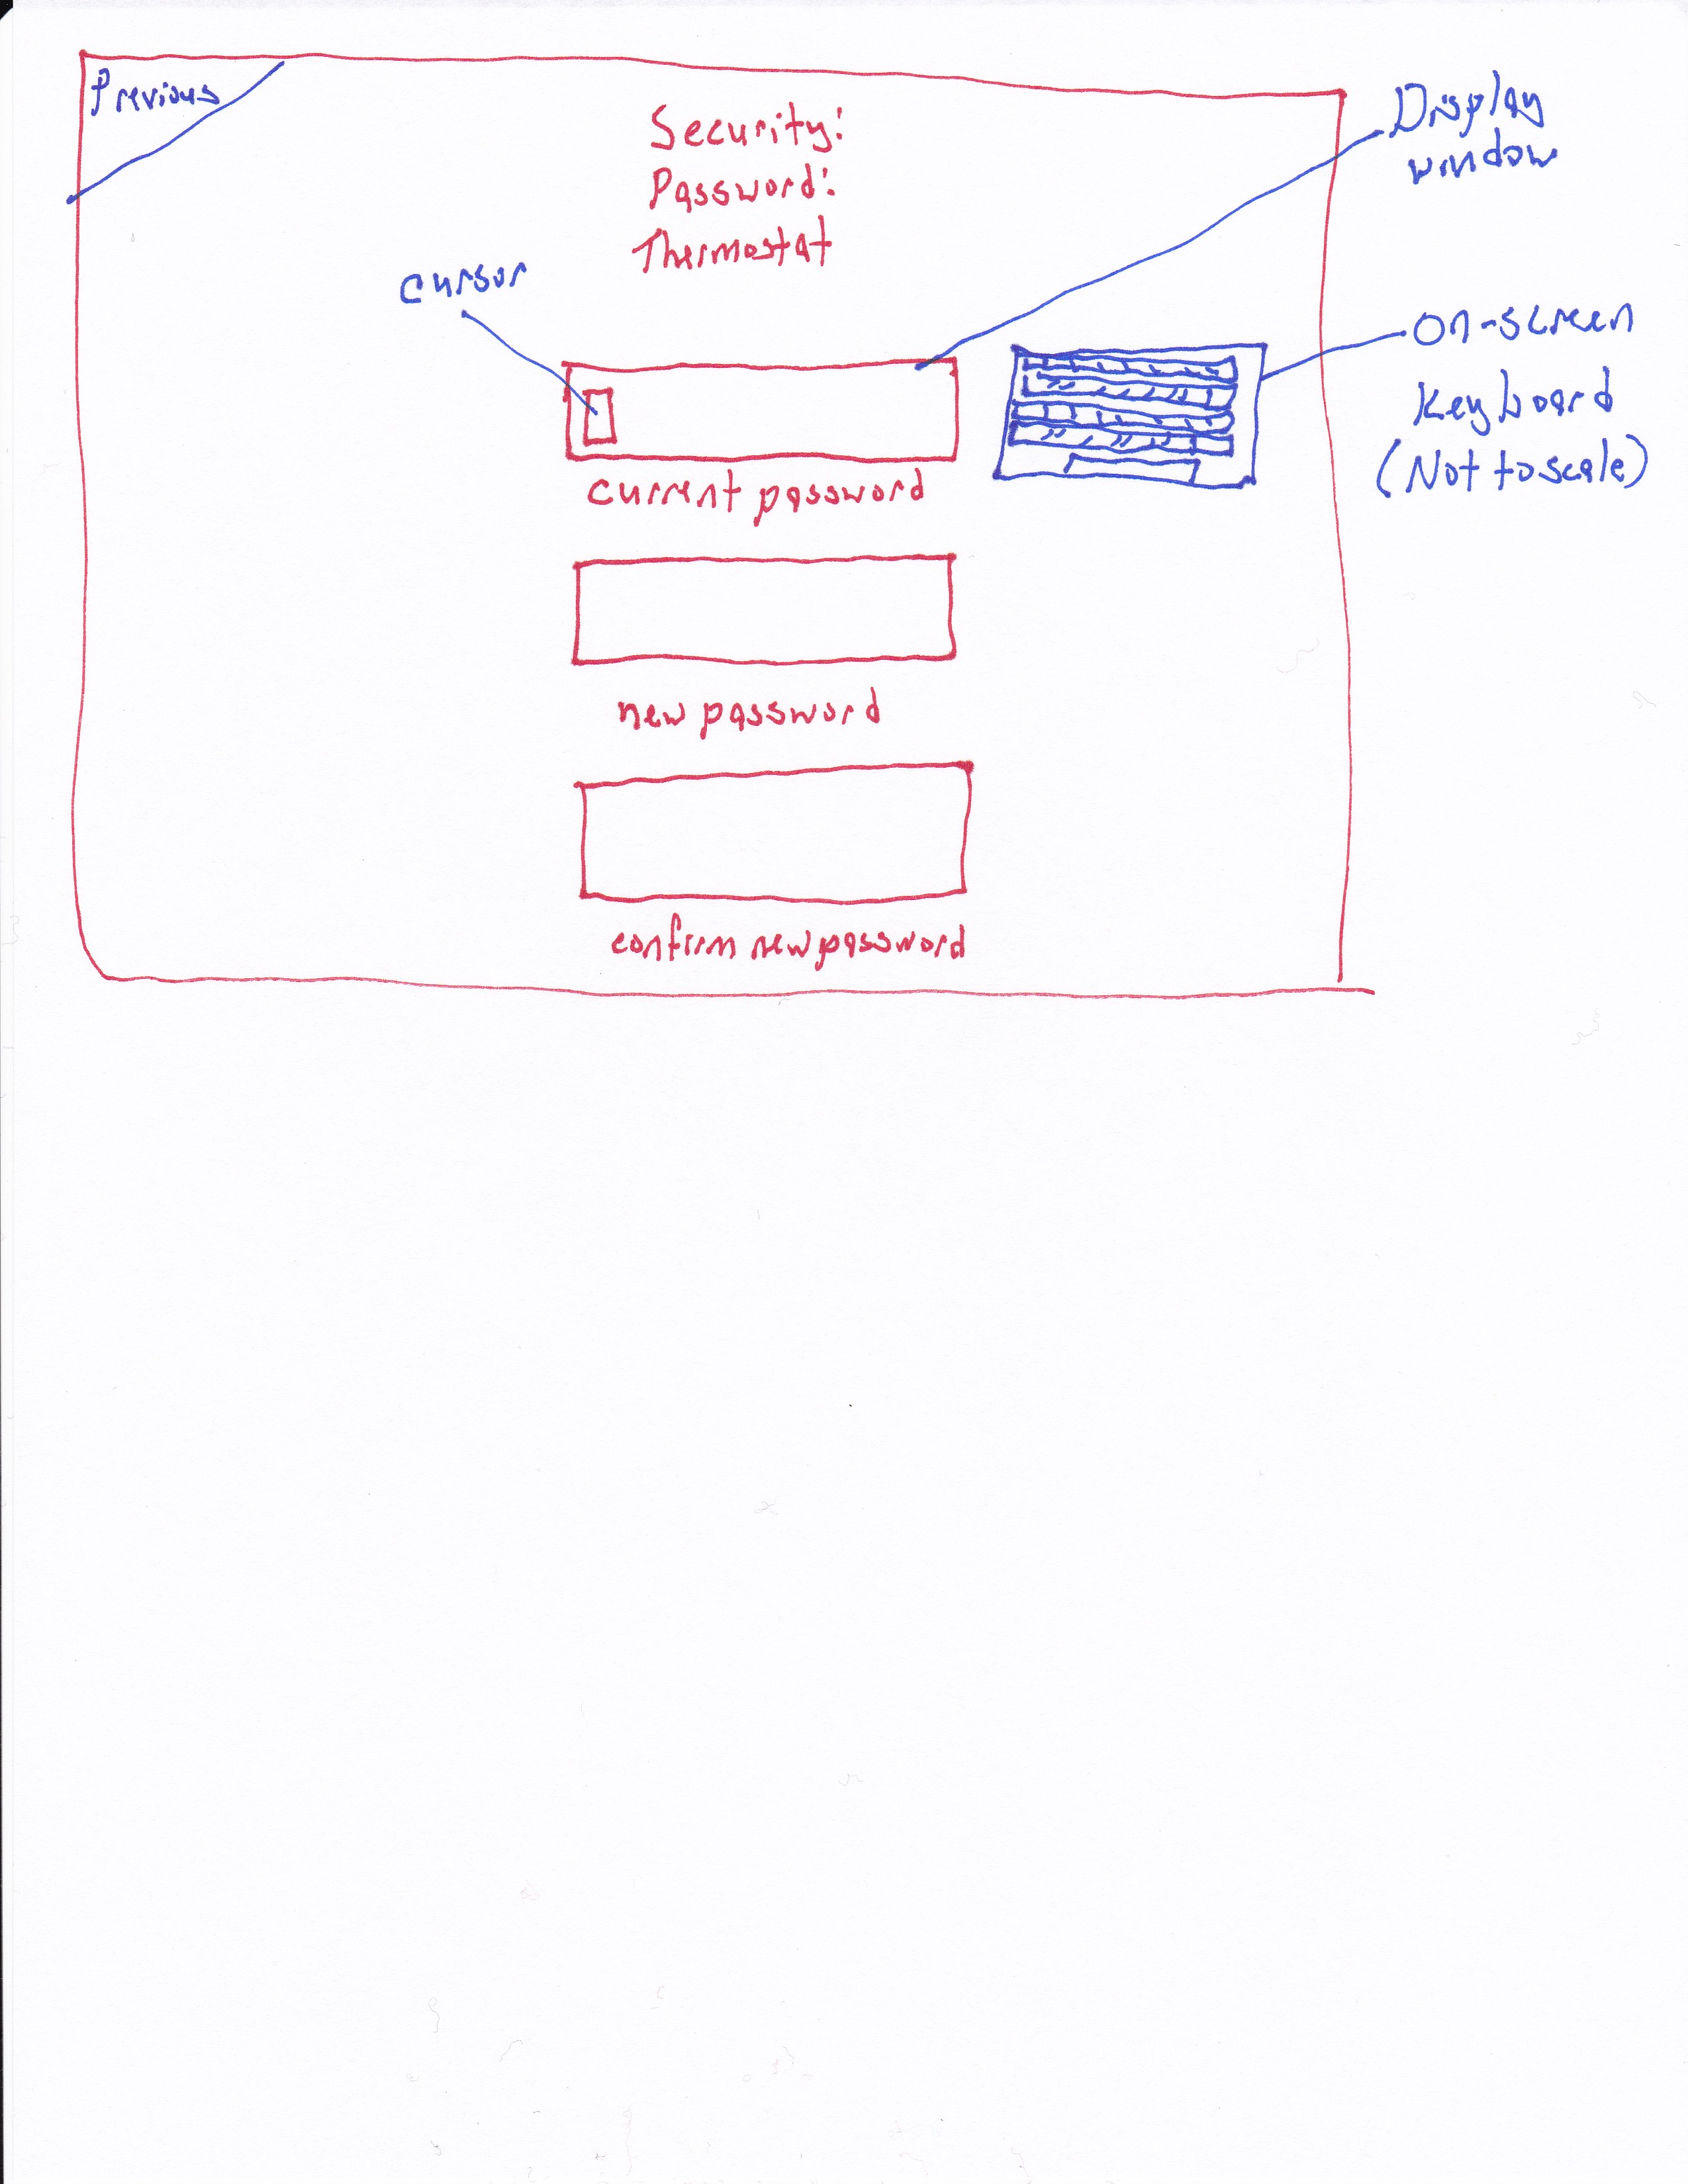 Previous
Security:
Password:
Thermostat
Display
window
cursor
on-screen
Keyboard
(Not to scale)
current password
new password
confirm new password